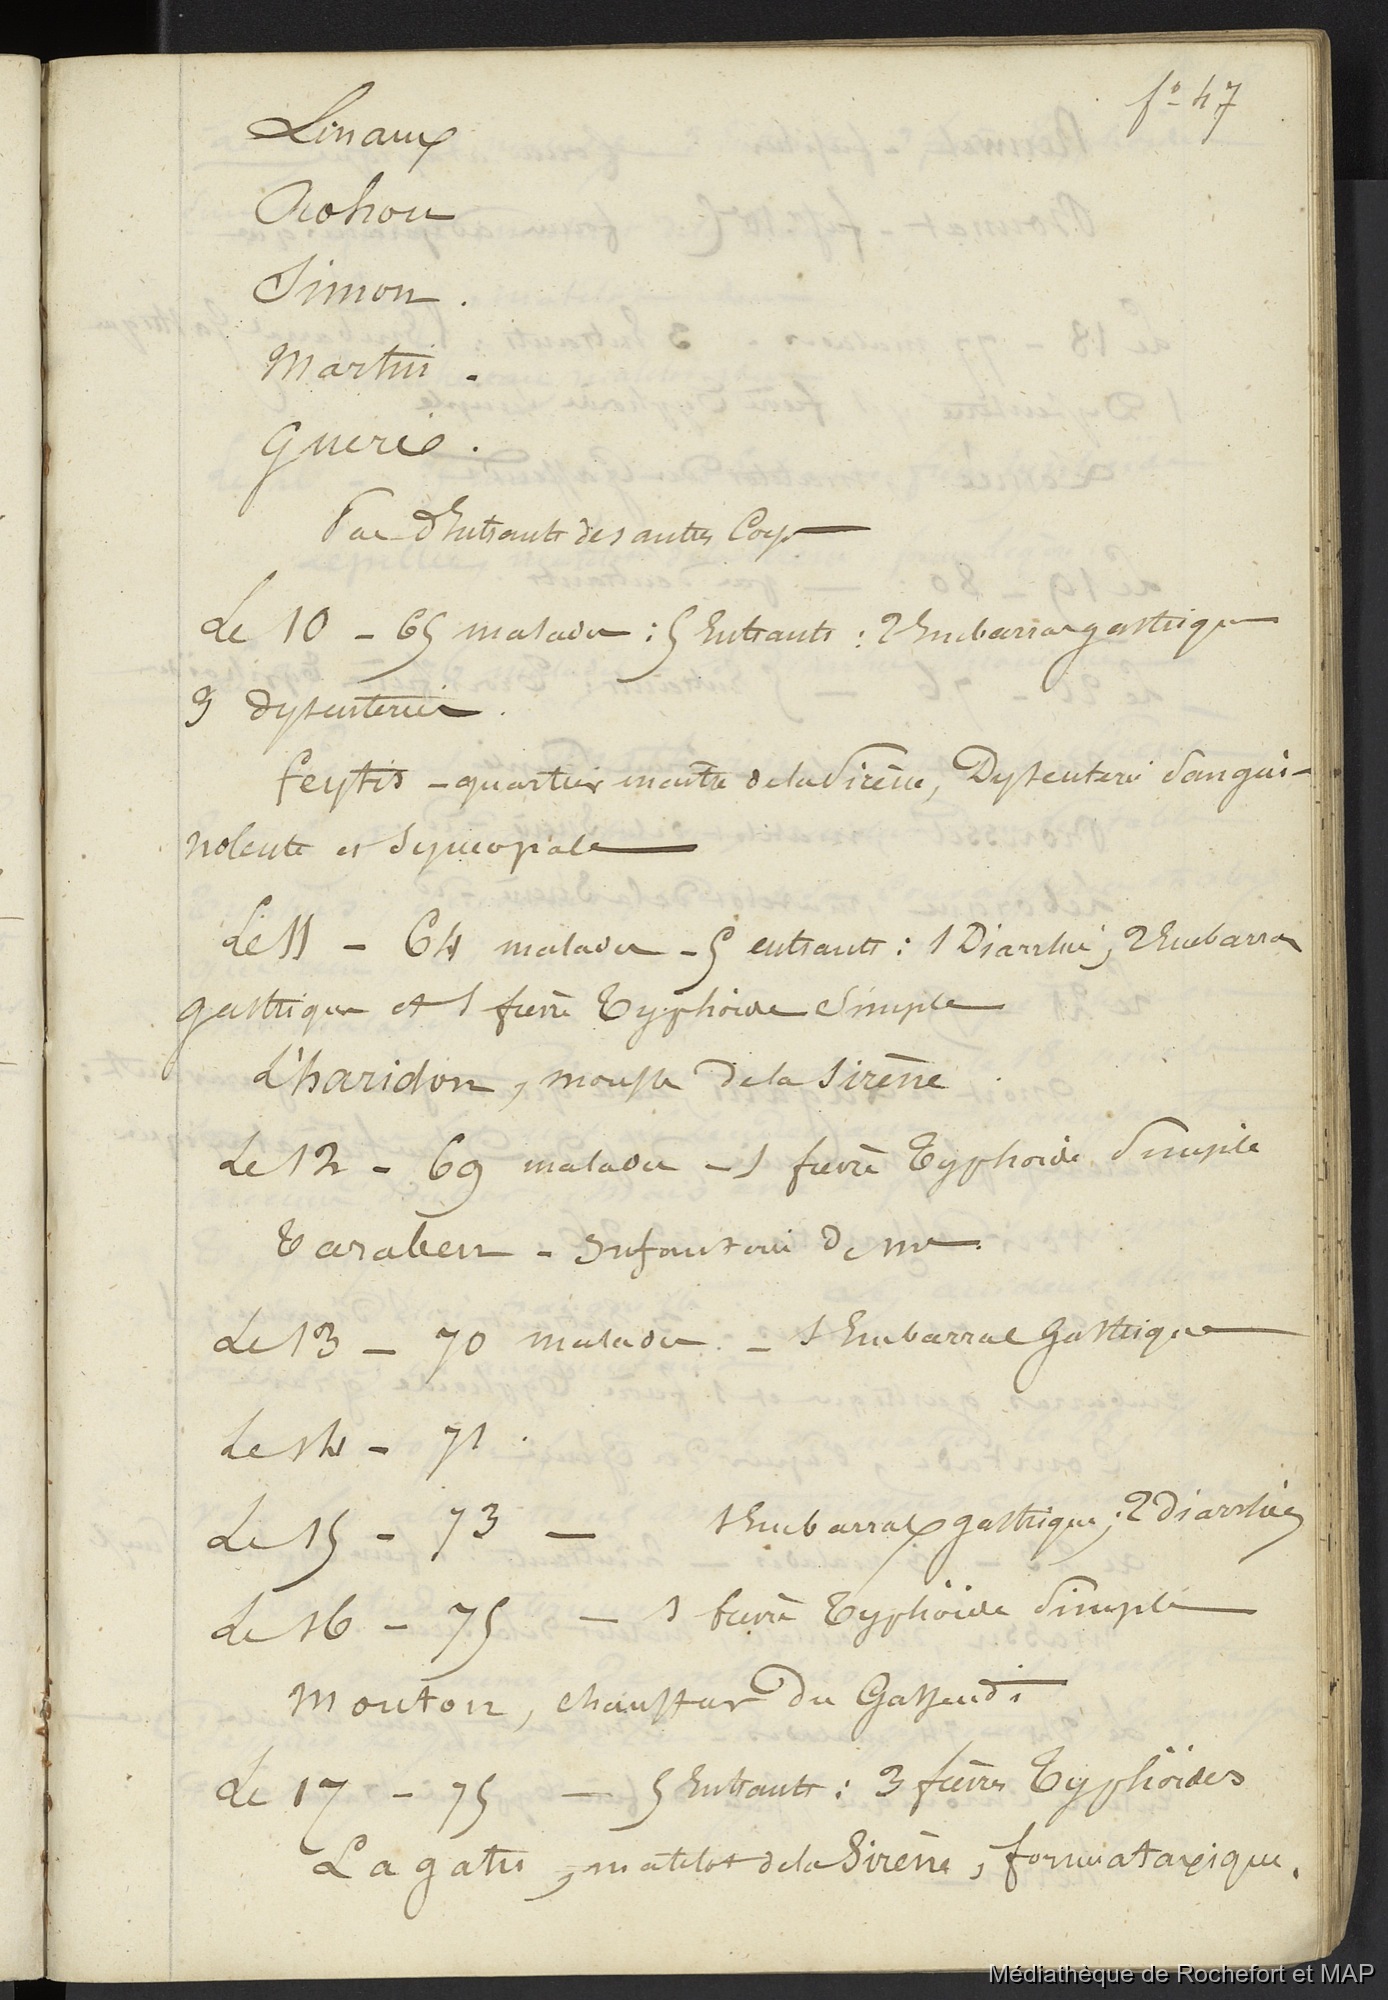 fo 47
Linaux
Rohou
Simon.
Martin.
Queric.
Pas d'Entrants des autres Corps
Le 10 - 65 malades : 5 Entrants : 2 Embarras gastriques
3 dysenteries.
feytis - quartier maître de la Sirène, Dysenterie sangui-
nolente et syncopale
Le 11 - 64 malades - 5 entrants : 1 Diarrhée, 2 Embarras
gastriques et 1 fièvre Typhoïde simple
L'haridon, mousse de la Sirène
Le 12 - 69 malades - 1 fièvre Typhoïde Simple
Taraben - Infanterie de me.
Le 13 - 70 malades - 1 Embarras Gastrique
Le 14 - 71.
Le 15 - 73 - 1 Embarras gastrique, 2 Diarrhées
Le 16 - 75 - 1 fièvre Typhoïde Simple
Mouton, chauffeur du Gassendi
Le 17 - 75 - 5 Entrants : 3 fièvres Typhoïdes
Lagatu, matelot de la Sirène, forme ataxique.
Médiathèque de Rochefort et MAP